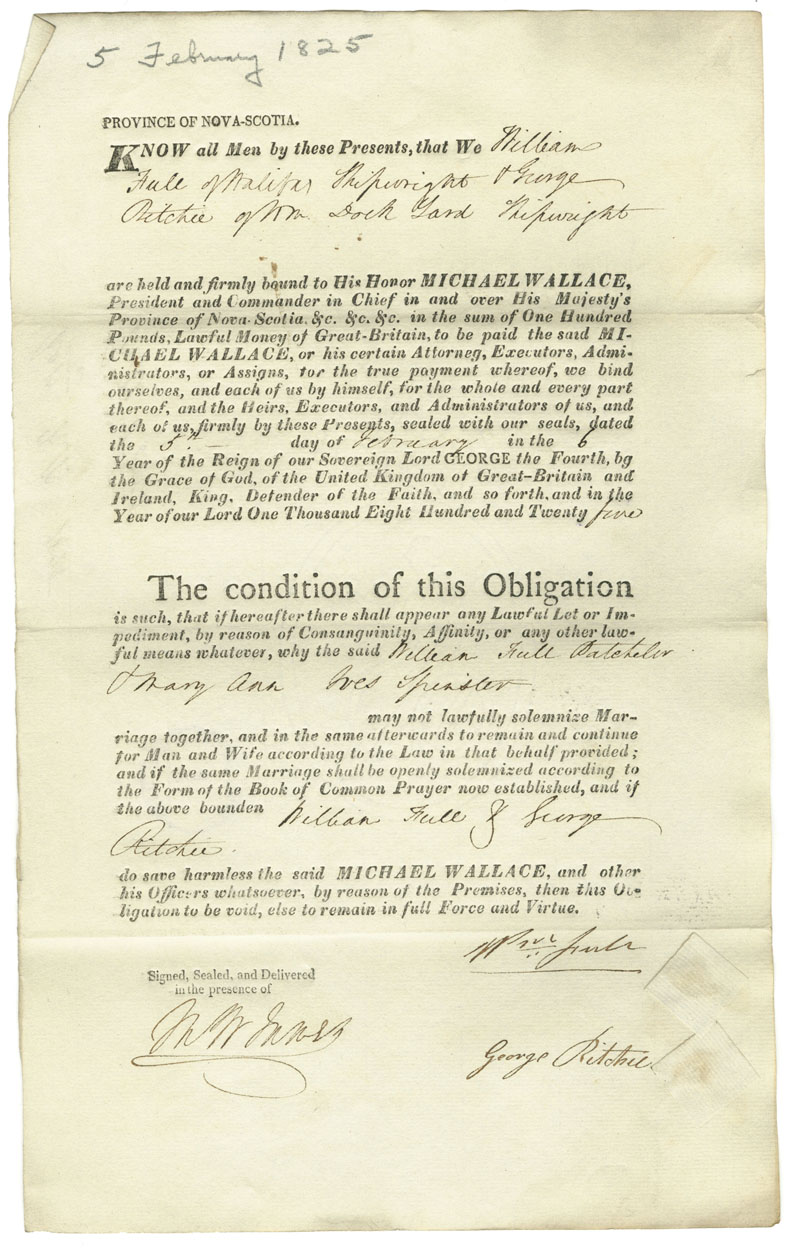 5 February 1825
PROVINCE OF NOVA-SCOTIA.
KNOW all Men by these Presents, that We William
Full of Halifax Shipwright & George
Ritchie of Dock Yard Shipwright
are held and firmly bound to His Honor MICHAEL WALLACE,
President and Commander in Chief in and over His Majesty's
Province of Nova-Scotia, &c. &c. &c. in the sum of One Hundred
Pounds, Lawful Money of Great-Britain, to be paid the said MI-
CHAEL WALLACE, or his certain Attorney, Executors, Admi-
nistrators, or Assigns, for the true payment whereof, we bind
ourselves, and each of us by himself, for the whole and every part
thereof, and the Heirs, Executors, and Administrators of us, and
each of us, firmly by these Presents, sealed with our seals, dated
the 5th day of February in the 6
Year of the Reign of our Sovereign Lord GEORGE the Fourth, by
the Grace of God, of the United Kingdom of Great-Britain and
Ireland, King, Defender of the Faith, and so forth, and in the
Year of our Lord One Thousand Eight Hundred and Twenty five
The condition of this Obligation
is such, that if hereafter there shall appear any Lawful Let or Im-
pediment, by reason of Consanguinity, Affinity, or any other law-
ful means whatever, why the said William Full Batchelor
& Mary Ann Ives Spinster
may not lawfully solemnize Mar-
riage together, and in the same afterwards to remain and continue
for Man and Wife according to the Law in that behalf provided;
and if the same Marriage shall be openly solemnized according to
the Form of the Book of Common Prayer now established, and if
the above bounden William Full & George
Ritchie
do save harmless the said MICHAEL WALLACE, and other
his Officers whatsoever, by reason of the Premises, then this Ob-
ligation to be void, else to remain in full Force and Virtue.
Wm Full
Signed, Sealed, and Delivered
in the presence of
George Ritchie